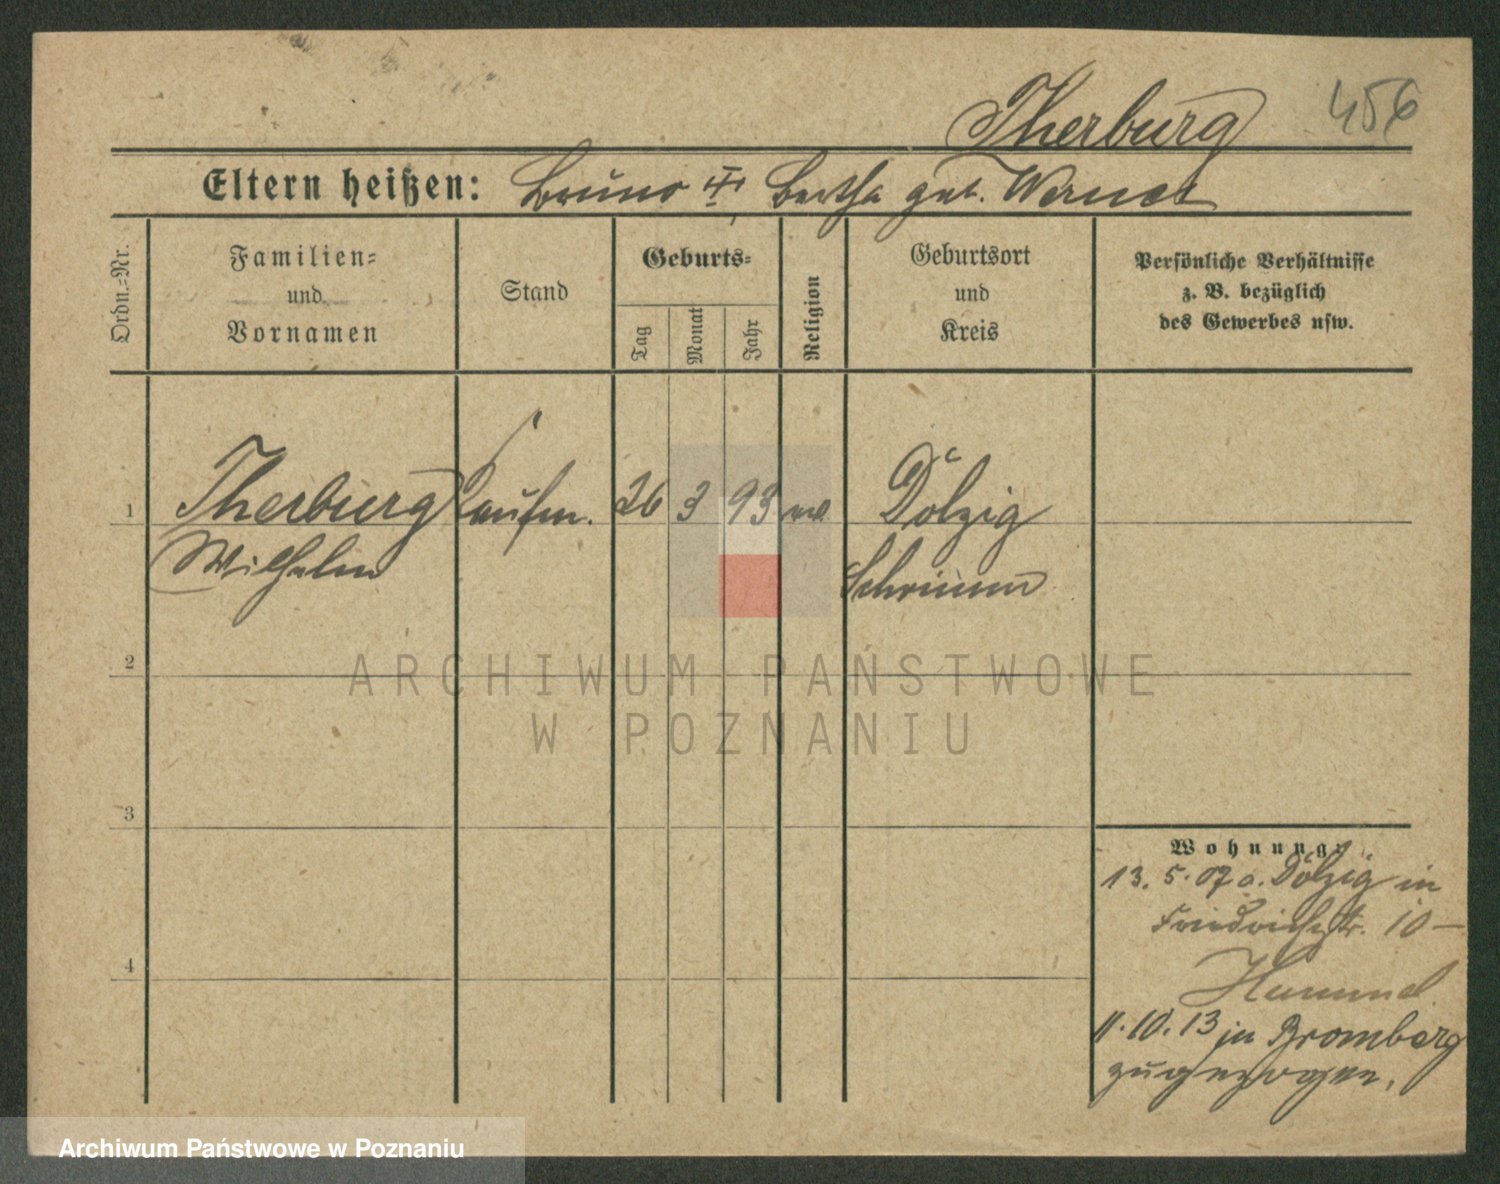 Therburg 456
Eltern heißen: Bruno Bertha geb. Werner
Ordn.-Nr.
Familien-
und
Vornamen
Stand
Geburts-
Tag
Monat
Jahr
Religion
Geburtsort
und
Kreis
Persönliche Verhältnisse
z. B. bezüglich
des Gewerbes usw.
1 Therburg Kaufm. 26 3 93 ev. Dolzig
Wilhelm Schrimm
2
ARCHIWUM PAŃSTWOWE
W POZNANIU
3
Wohnung.
13. 5. 07 a. Dolzig in
Friedrichstr. 10 -
Hummel
4
11. 10. 13 in Bromberg
zugezogen.
Archiwum Państwowe w Poznaniu